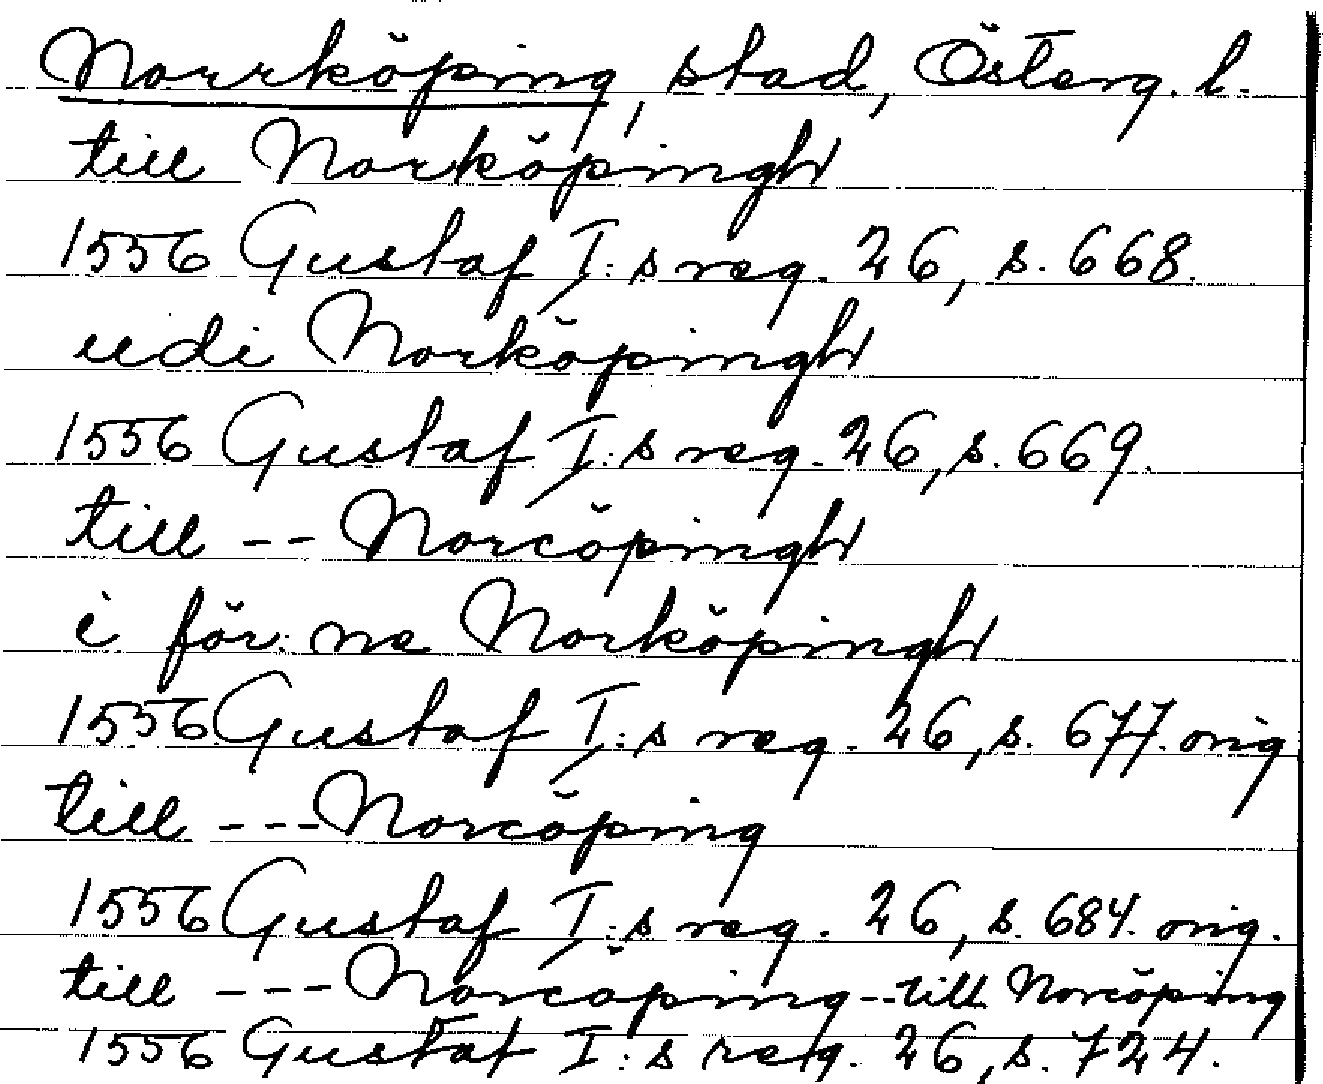 Norrköping, stad, Österg. l.
till Norköpingh
1556 Gustaf I:s reg. 26, s. 668.
udi Norköpingh
1556 Gustaf I:s reg. 26, s. 669.
till -- Norcöpingh
i för:ne Norköpingh
1556 Gustaf I:s reg. 26, s. 677. orig
till --- Norcöping
1556 Gustaf I:s reg. 26, s. 684. orig.
till --- Norcöping -- till Norcöping
1556 Gustaf I:s reg. 26, s. 724.